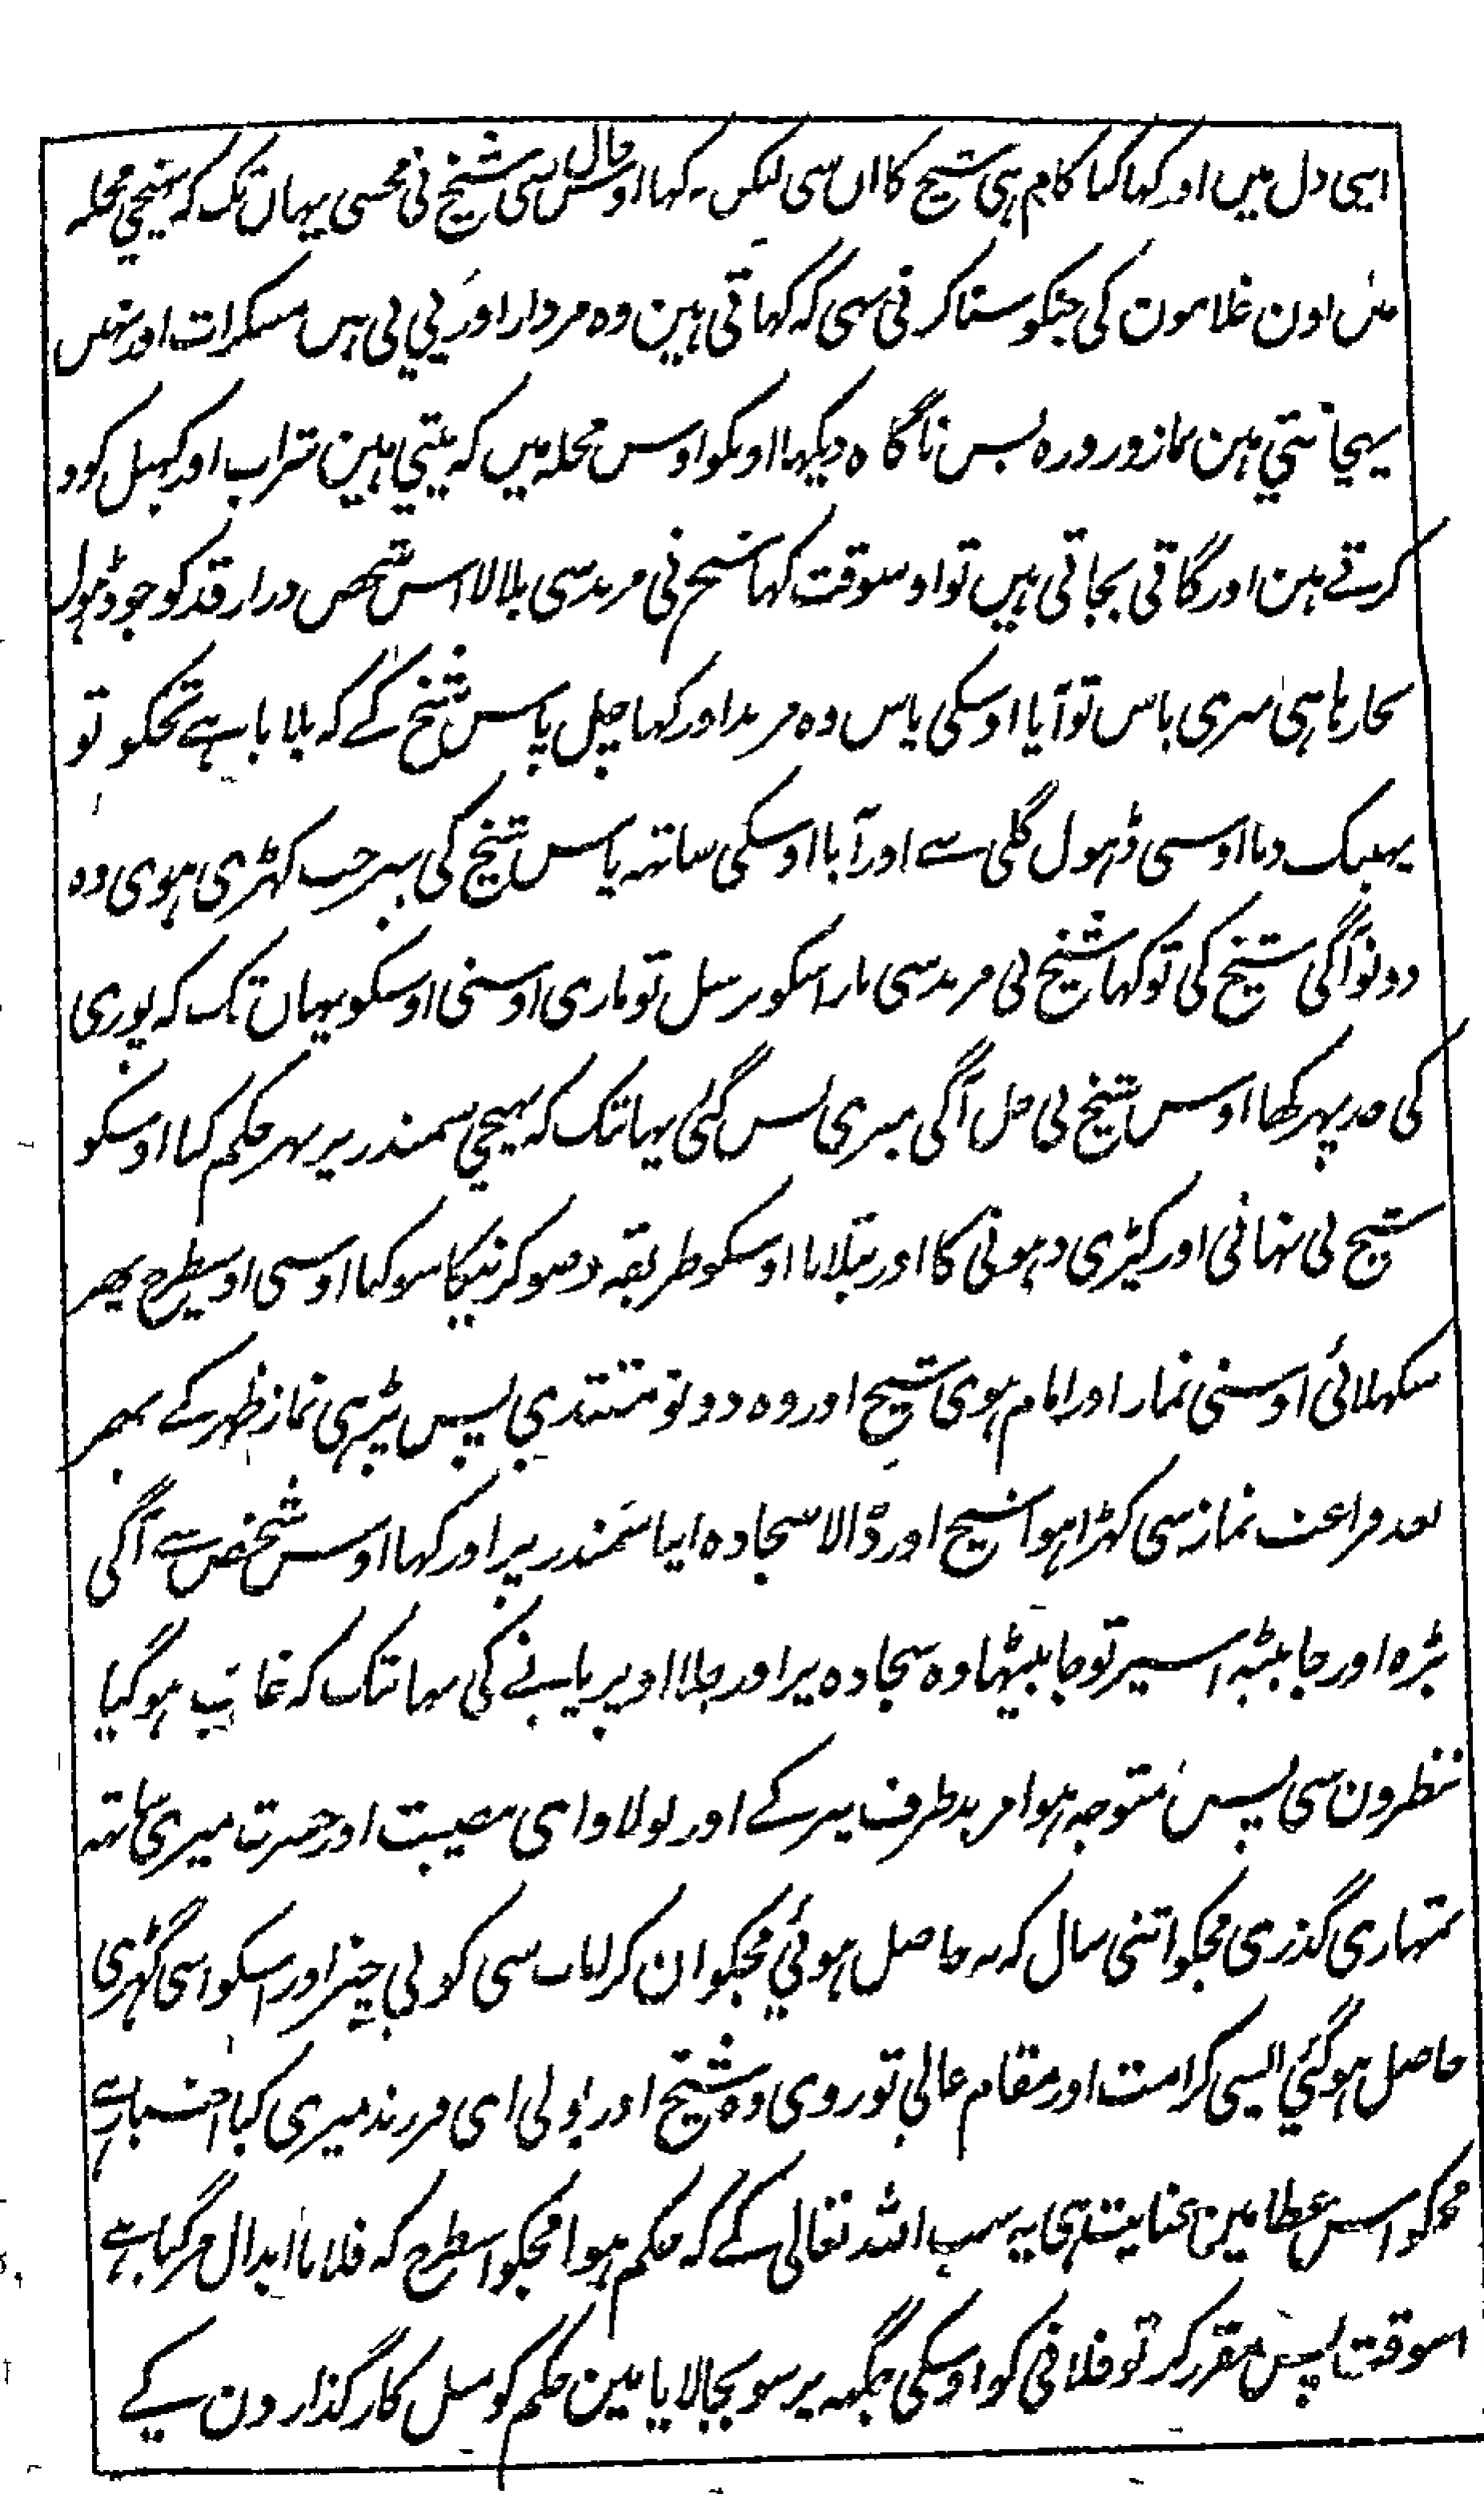 اپنی دل میں اور کہا کیا کام ہی شیخ کا ان سی لیکن نہ کہا اوس حال سی شیخ نی مجھسی یہان تک کہ پہنچی محلہ
میں اون غلامون کی جنکو سنا کرنی تہی کہ کہاتی ہین وہ مردار اور پی تی ہیں مسکرات اور نہیں
پہچانتی ہین نماز و روزہ پس ناگاہ دیکہا اونکو اوس محلہ میں کہ پیتی ہین شراب اور کہیل کود
کرتے ہین اور گاتی بجاتی ہیں تو اوسوقت کہا شیخ نی مرید سی بلا لا اس شخص دراز قد کو جو ڈہول
بجا رہا ہی میری پاس تو آیا اوسکی پاس وہ مرید اور کہا چل پاس شیخ کے کہ بلایا ہے تجکو تو
پہینک دیا اوسی ڈہول گلی سے اور آیا اوسکی ساتہ پاس شیخ کی پہر جب کہڑی ہوی وہ
دونو آگی شیخ کی تو کہا شیخ نی مرید سی مار اسکو تو ماری اوسنی اوسکو یہان تک کہ پوری
کی حد پہر کہا اوس شیخ نی چل آگی میری پس گئی یہانتک کہ پہنچی سمندر پر پہر حکم کیا اوسکو
شیخ نی نہانی اور کپڑی دہونی کا اور بتلایا اوسکو طریقہ وضو کرنیکا سو کہا اوسی اوسیطرح پھر
سکہلائی اوسنی نماز اور امام ہوی شیخ اور وہ دونو مقتدی پس پڑہی نماز ظہر کے پھر
بعد فراغت نماز سی کہڑا ہوا شیخ اور ڈالا سجادہ اپنا سمندر پر اور کہا اوس شخص سے آگی
بڑہ اور جا بیٹہ اسپر تو جا بیٹہا وہ سجادہ پر اور چلا اوپر پانے کی یہانتک کہ غائب ہو گیا
نظرون سی پس متوجہ ہوا مرید طرف پیر کے اور بولا وای مصیبت اور حسرت میری ساتہ
تمہاری گذری مجکو اتنی سال کہ نہ حاصل ہوئی مجکو ان کرامات سی کوئی چیز اور اسکو اسی گہڑی
حاصل ہو گئی ایسی کرامت اور مقام عالی تو روی وہ شیخ اور بولی ای فرزند میری کیا اختیار ہے
مجکو اس عطا مین عنایت ہی یہ سب اللہ تعالی کے کہ حکم ہوا مجکو اسطرح کہ فلانا ابدال مر گیا ہے
اسوقت پس مقرر کر تو فلانی کو اوسکی جگہہ پر سو بجا لایا مین حکم کو مثل کارگذارون کے